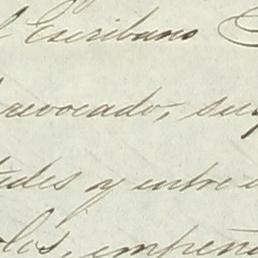 l Escribano
revocado, sus
tudes y entre
los, empeña